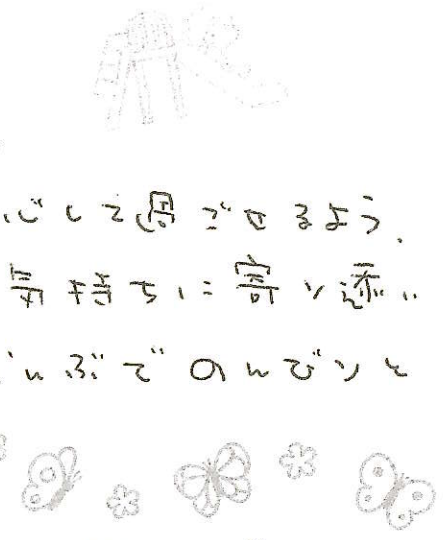 心して過ごせるよう、
気持ちに寄り添い
んぶでのんびりと